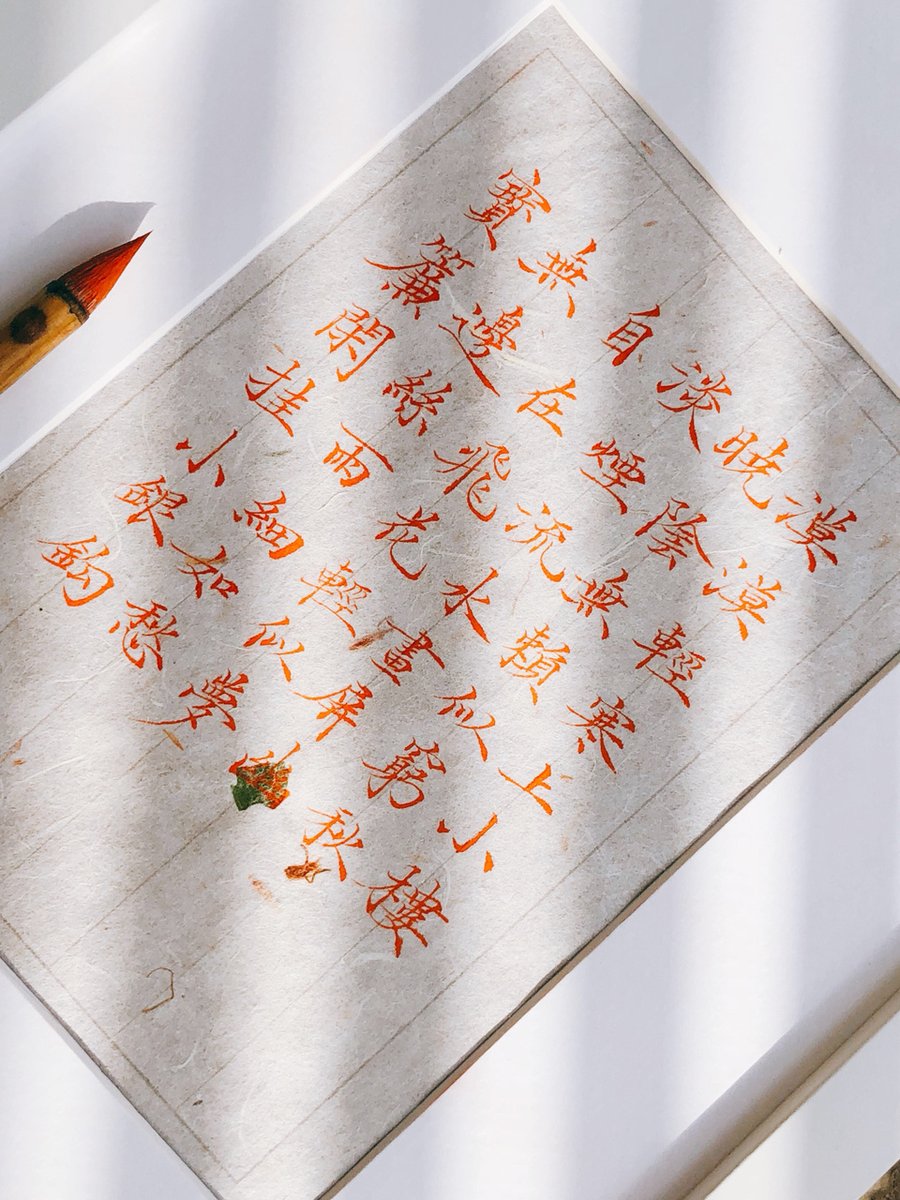 漠漠輕寒上小樓
晓陰無賴似窮秋
淡煙流水畫屏
自在飛花輕似夢
無邊絲雨細如愁
寶簾閑挂小銀鈎